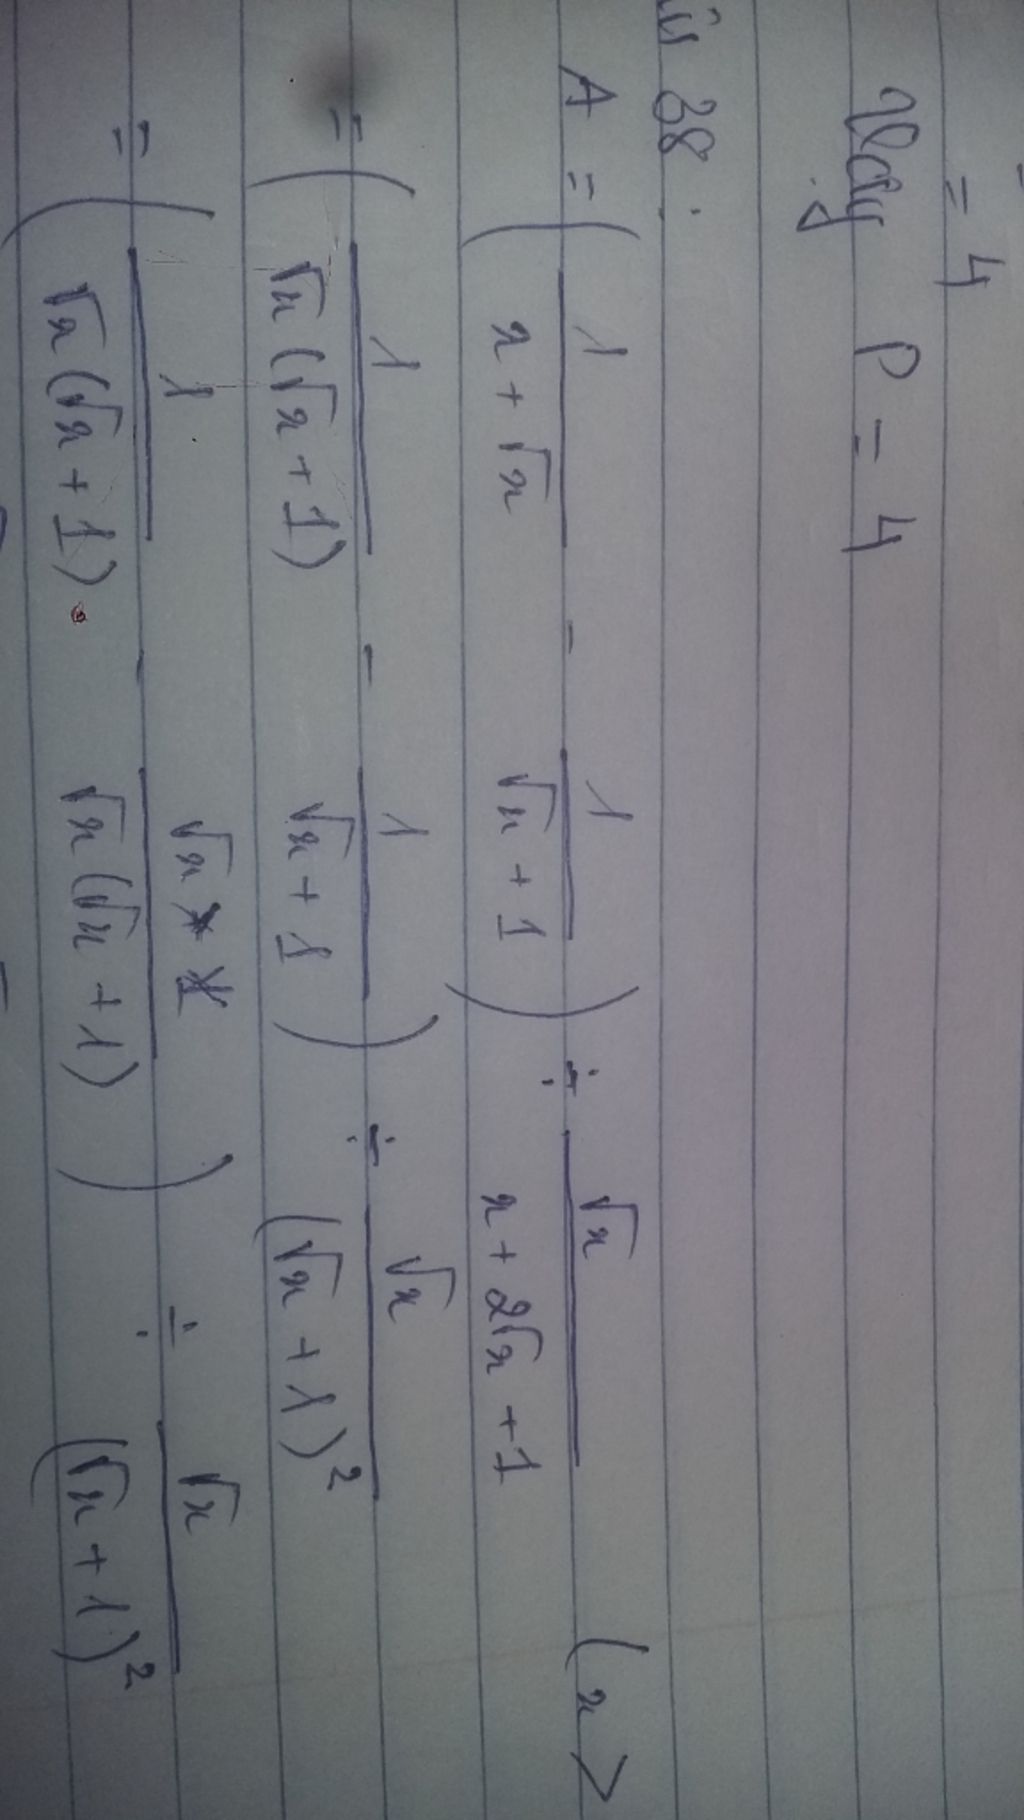 = 4
Vậy P = 4
38.
A = ( 1/(x + √x) - 1/(√x + 1) ) ÷ √x/(x + 2√x + 1) (x >
= ( 1/(√x (√x + 1)) - 1/(√x + 1) ) ÷ √x/(√x + 1)²
= ( 1/(√x (√x + 1)) - √x/(√x (√x + 1)) ) ÷ √x/(√x + 1)²